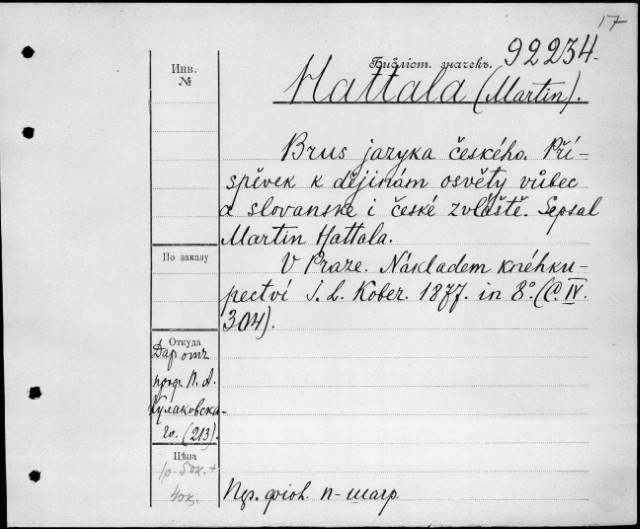 17
Библіот. значекъ. 92234.
Инв.
№
Hattala (Martin).
Brus jazyka českého. Pří-
spěvek k dějinám osvěty vůbec
a slovanské i české zvláště. Sepsal
Martin Hattala.
По заказу
V Praze. Nákladem kněhku-
pectví I. L. Kober. 1877. in 8º. (C. IV.
304).
Откуда
Даръ отъ
проф. П. А.
Кулаковска-
го. (213).
Цѣна
1р. 50к. +
40к.